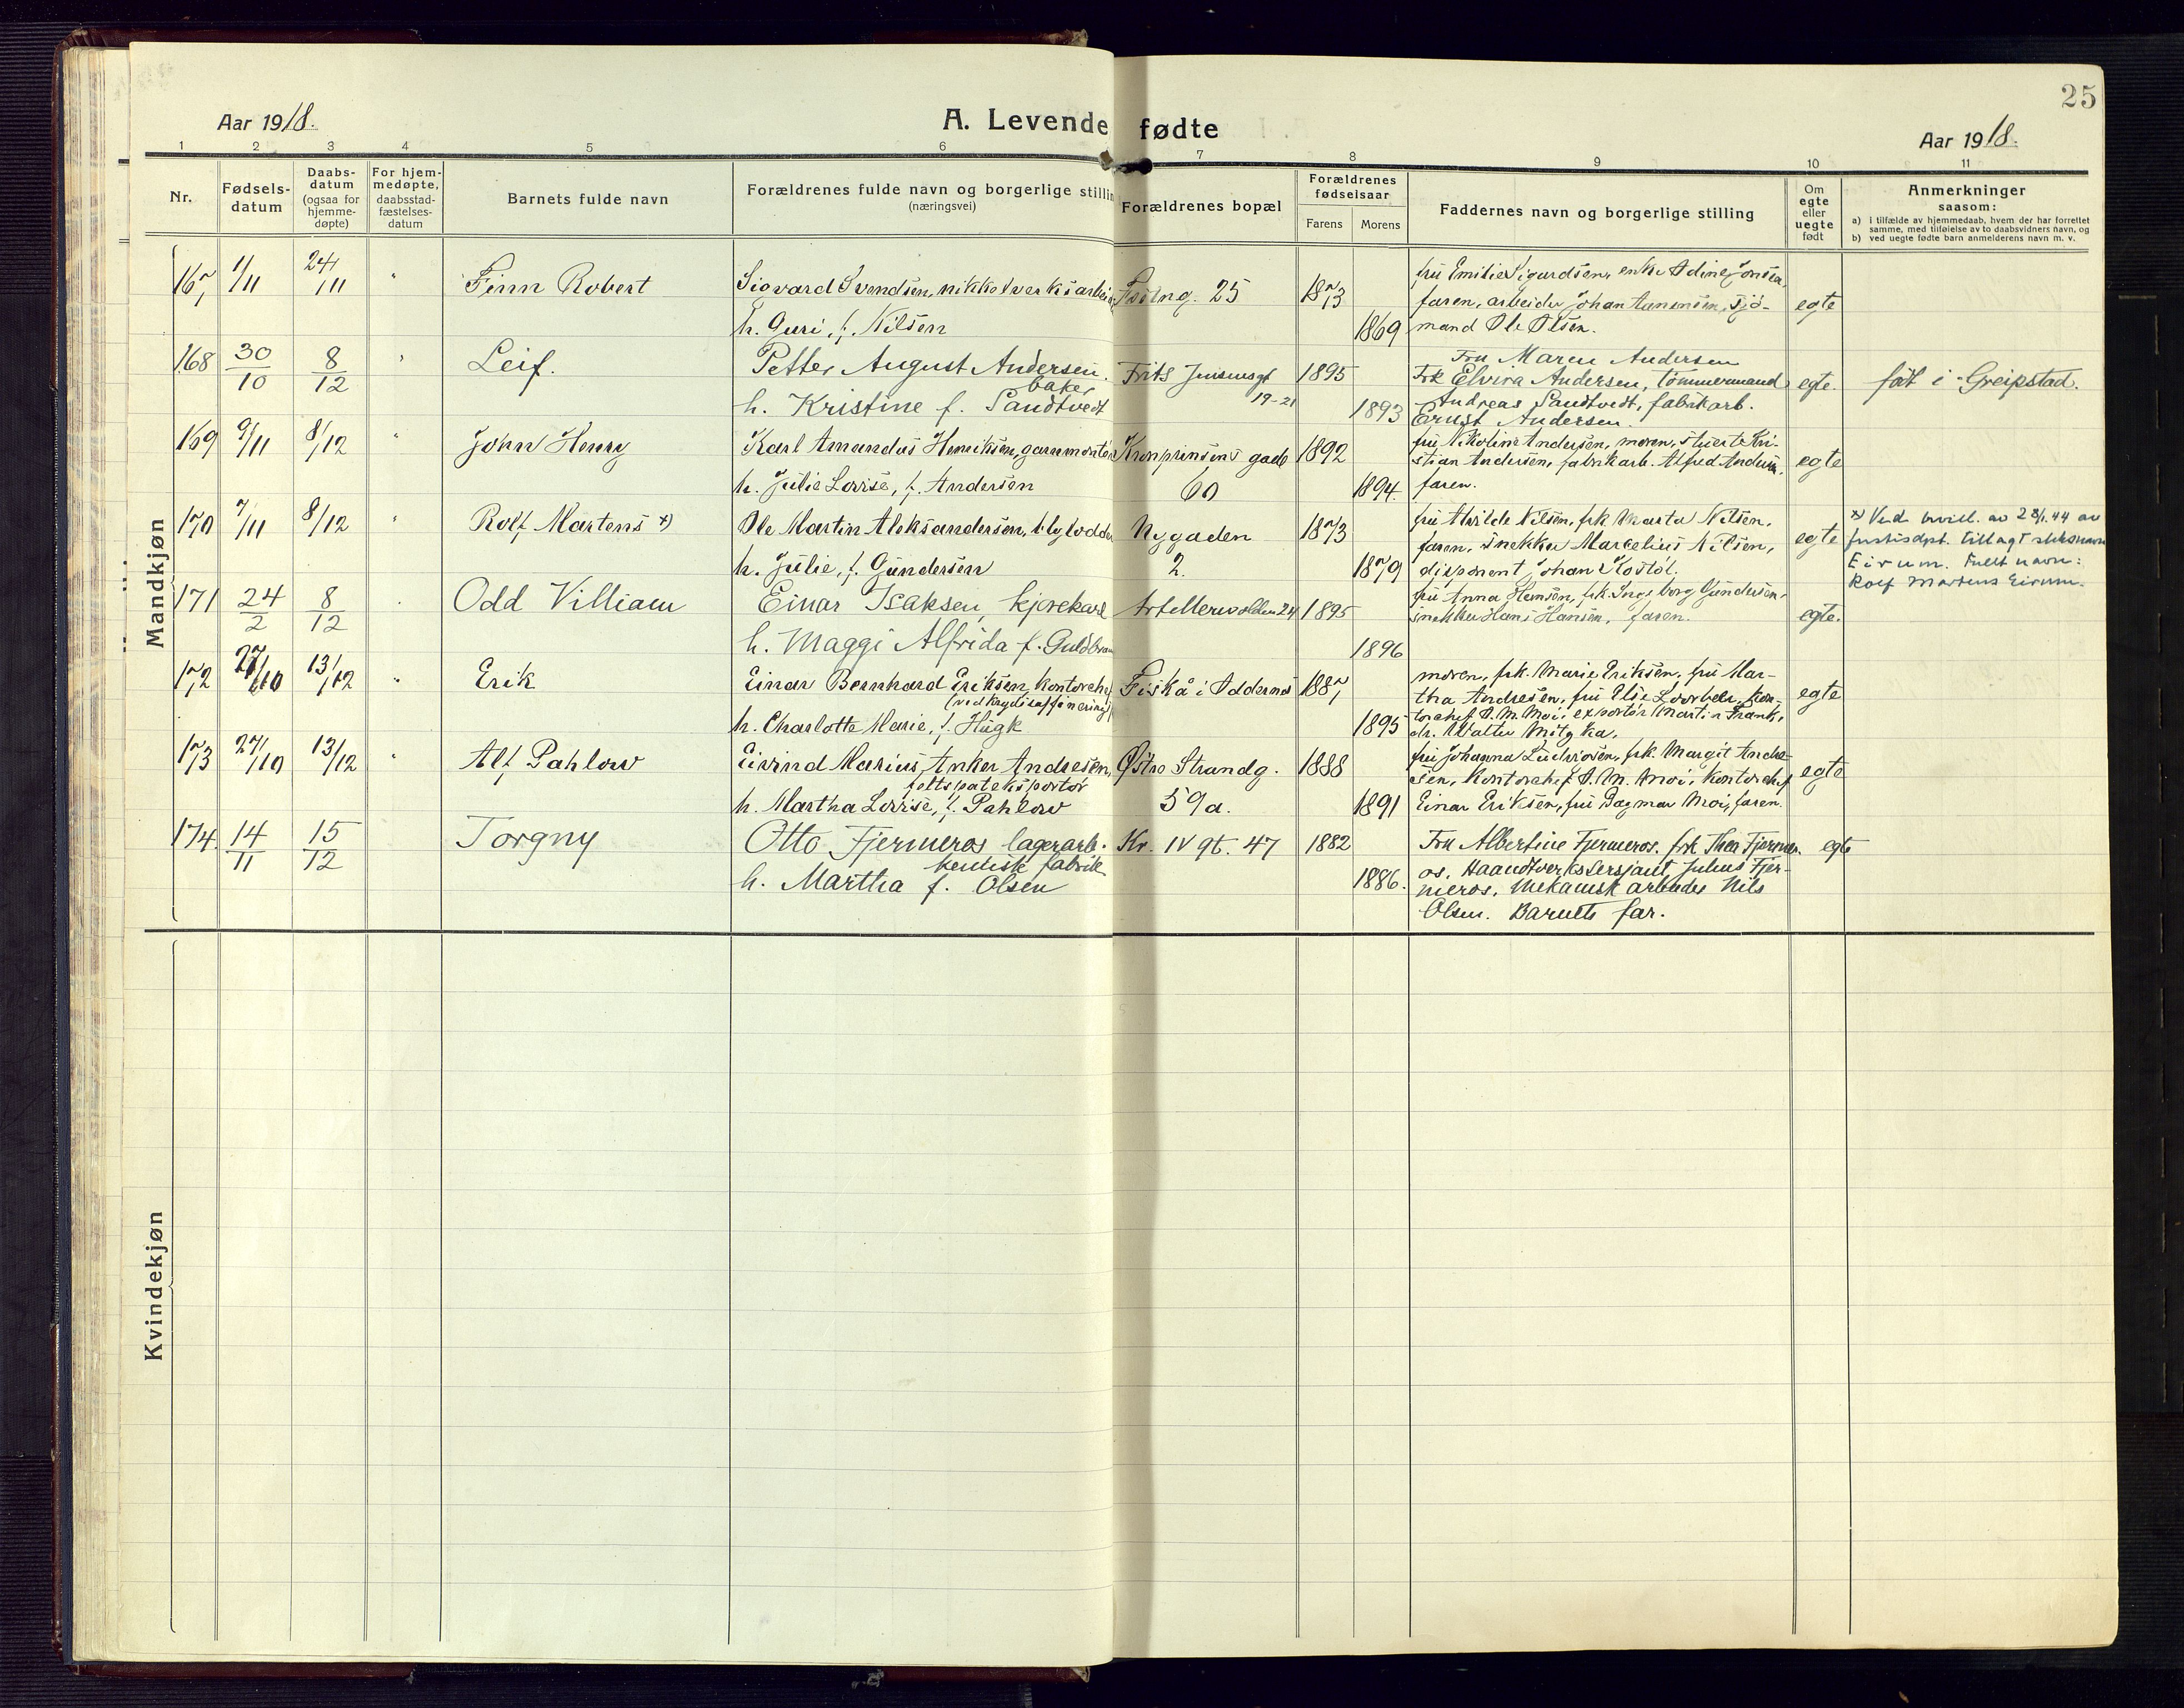 25
Aar 1918.
A. Levende fødte
Aar 1918.
1 2 3 4 5 6 7 8 9 10 11
Nr.
Fødsels-
datum
Daabs-
datum
(ogsaa for
hjemme-
døpte)
For hjem-
medøpte,
daabsstad-
fæstelses-
datum
Barnets fulde navn
Forældrenes fulde navn og borgerlige stillin
(næringsvei)
Forældrenes bopæl
Forældrenes
fødselsaar
Farens Morens
Faddernes navn og borgerlige stilling
Om
egte
eller
uegte
født
Anmerkninger
saasom:
a) i tilfælde av hjemmedaab, hvem der har forrettet
samme, med tilføielse av to daabsvidners navn, og
b) ved uegte fødte barn anmelderens navn m. v.
Mandkjøn
167 1/11 24/11 " Finn Robert Sigvard Svendsen, nikkelverksarbeid 25 1873 fru Emilie Sigurdsen, enke Adine Jonsen,
faren, arbeider Johan Aanensen, sjö- egte
h. Guri, f. Nilsen 1869 mand Ole Olsen.
168 30/10 8/12 " Leif. Petter August Andersen. Frits Jensensgt 1895 Fru Maren Andersen
baker 19-21 Frk Elvira Andersen, tömmermand egte.
födt i Greipstad.
h. Kristine f. Sandtvedt 1893 Andreas Sandtvedt, fabrikarb.
Ernst Andersen.
169 9/11 8/12 " John Henry Karl Amandus Henriksen, garnmontör Kronprinsens gade 1892 fru Nikoline Andersen, moren, stuerte Kri-
stian Andersen, fabrikarb. Alfred Andersen, egte
h. Julie Lovise, f. Andersen 60 1894. faren.
170 7/11 8/12 " Rolf Martens x) Ole Martin Aleksandersen, blylodder Nygaden 1873 fru Alvilde Nilsen, frk Marta Nilsen,
faren, snekker Marcelius Nilsen, egte
h. Julie, f. Gundersen 2. 1879 disponent Johan Flostöl.
x) Ved bevill. av 28/1.44 av
Justisdpt. tillagt slektsnavn
Eirum. Fullt navn:
Rolf Martens Eirum.
171 24/2 8/12 " Odd Villiam Einar Isaksen, kjørekarl Artellerivolden 24 1895 fru Anna Hansen, frk. Ingeborg Gundersen,
snekker Hans Hansen, faren. egte.
h. Maggi Alfrida f. Guldbran 1896
172 27/10 13/12 " Erik Einar Bernhard Eriksen, kontorchef Fiskå i Oddernes 1887 moren, frk. Marie Eriksen, fru Mar-
tha Andresen, fru Else Loorbeer, kon- egte
h. Charlotte Marie, f. Hügk 1895 torchef A. M. Moi, exportör Martin Frank,
dr. Walter Mitzka.
173 27/10 13/12 " Alf Pahlow Eivind Marius Anker Andresen, Østre Strandg. 1888 fru Johanna Ludvigsen, frk. Margit Andre-
feltspateksportör sen, Kontorchef A. M. Moi, Kontorchef egte
h. Martha Lovise, f. Pahlow 59a. 1891 Einar Eriksen, fru Dagmar Moi, faren.
174. 14/11 15/12 Torgny Otto Fjermeros lagerarb. Kr. IV gt. 47 1882 Fru Albertine Fjermeros. frk Thea Fjerme- egte
kemisk fabrik os. Haandverkssersjant Julius Fjer-
h. Martha f. Olsen 1886. meros, Mekanisk arbeider Nils
Olsen. Barnets far.
Kvindekjøn